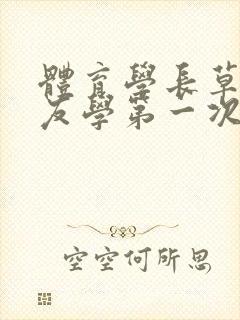 體育學長草
友學第一次
空空何所思